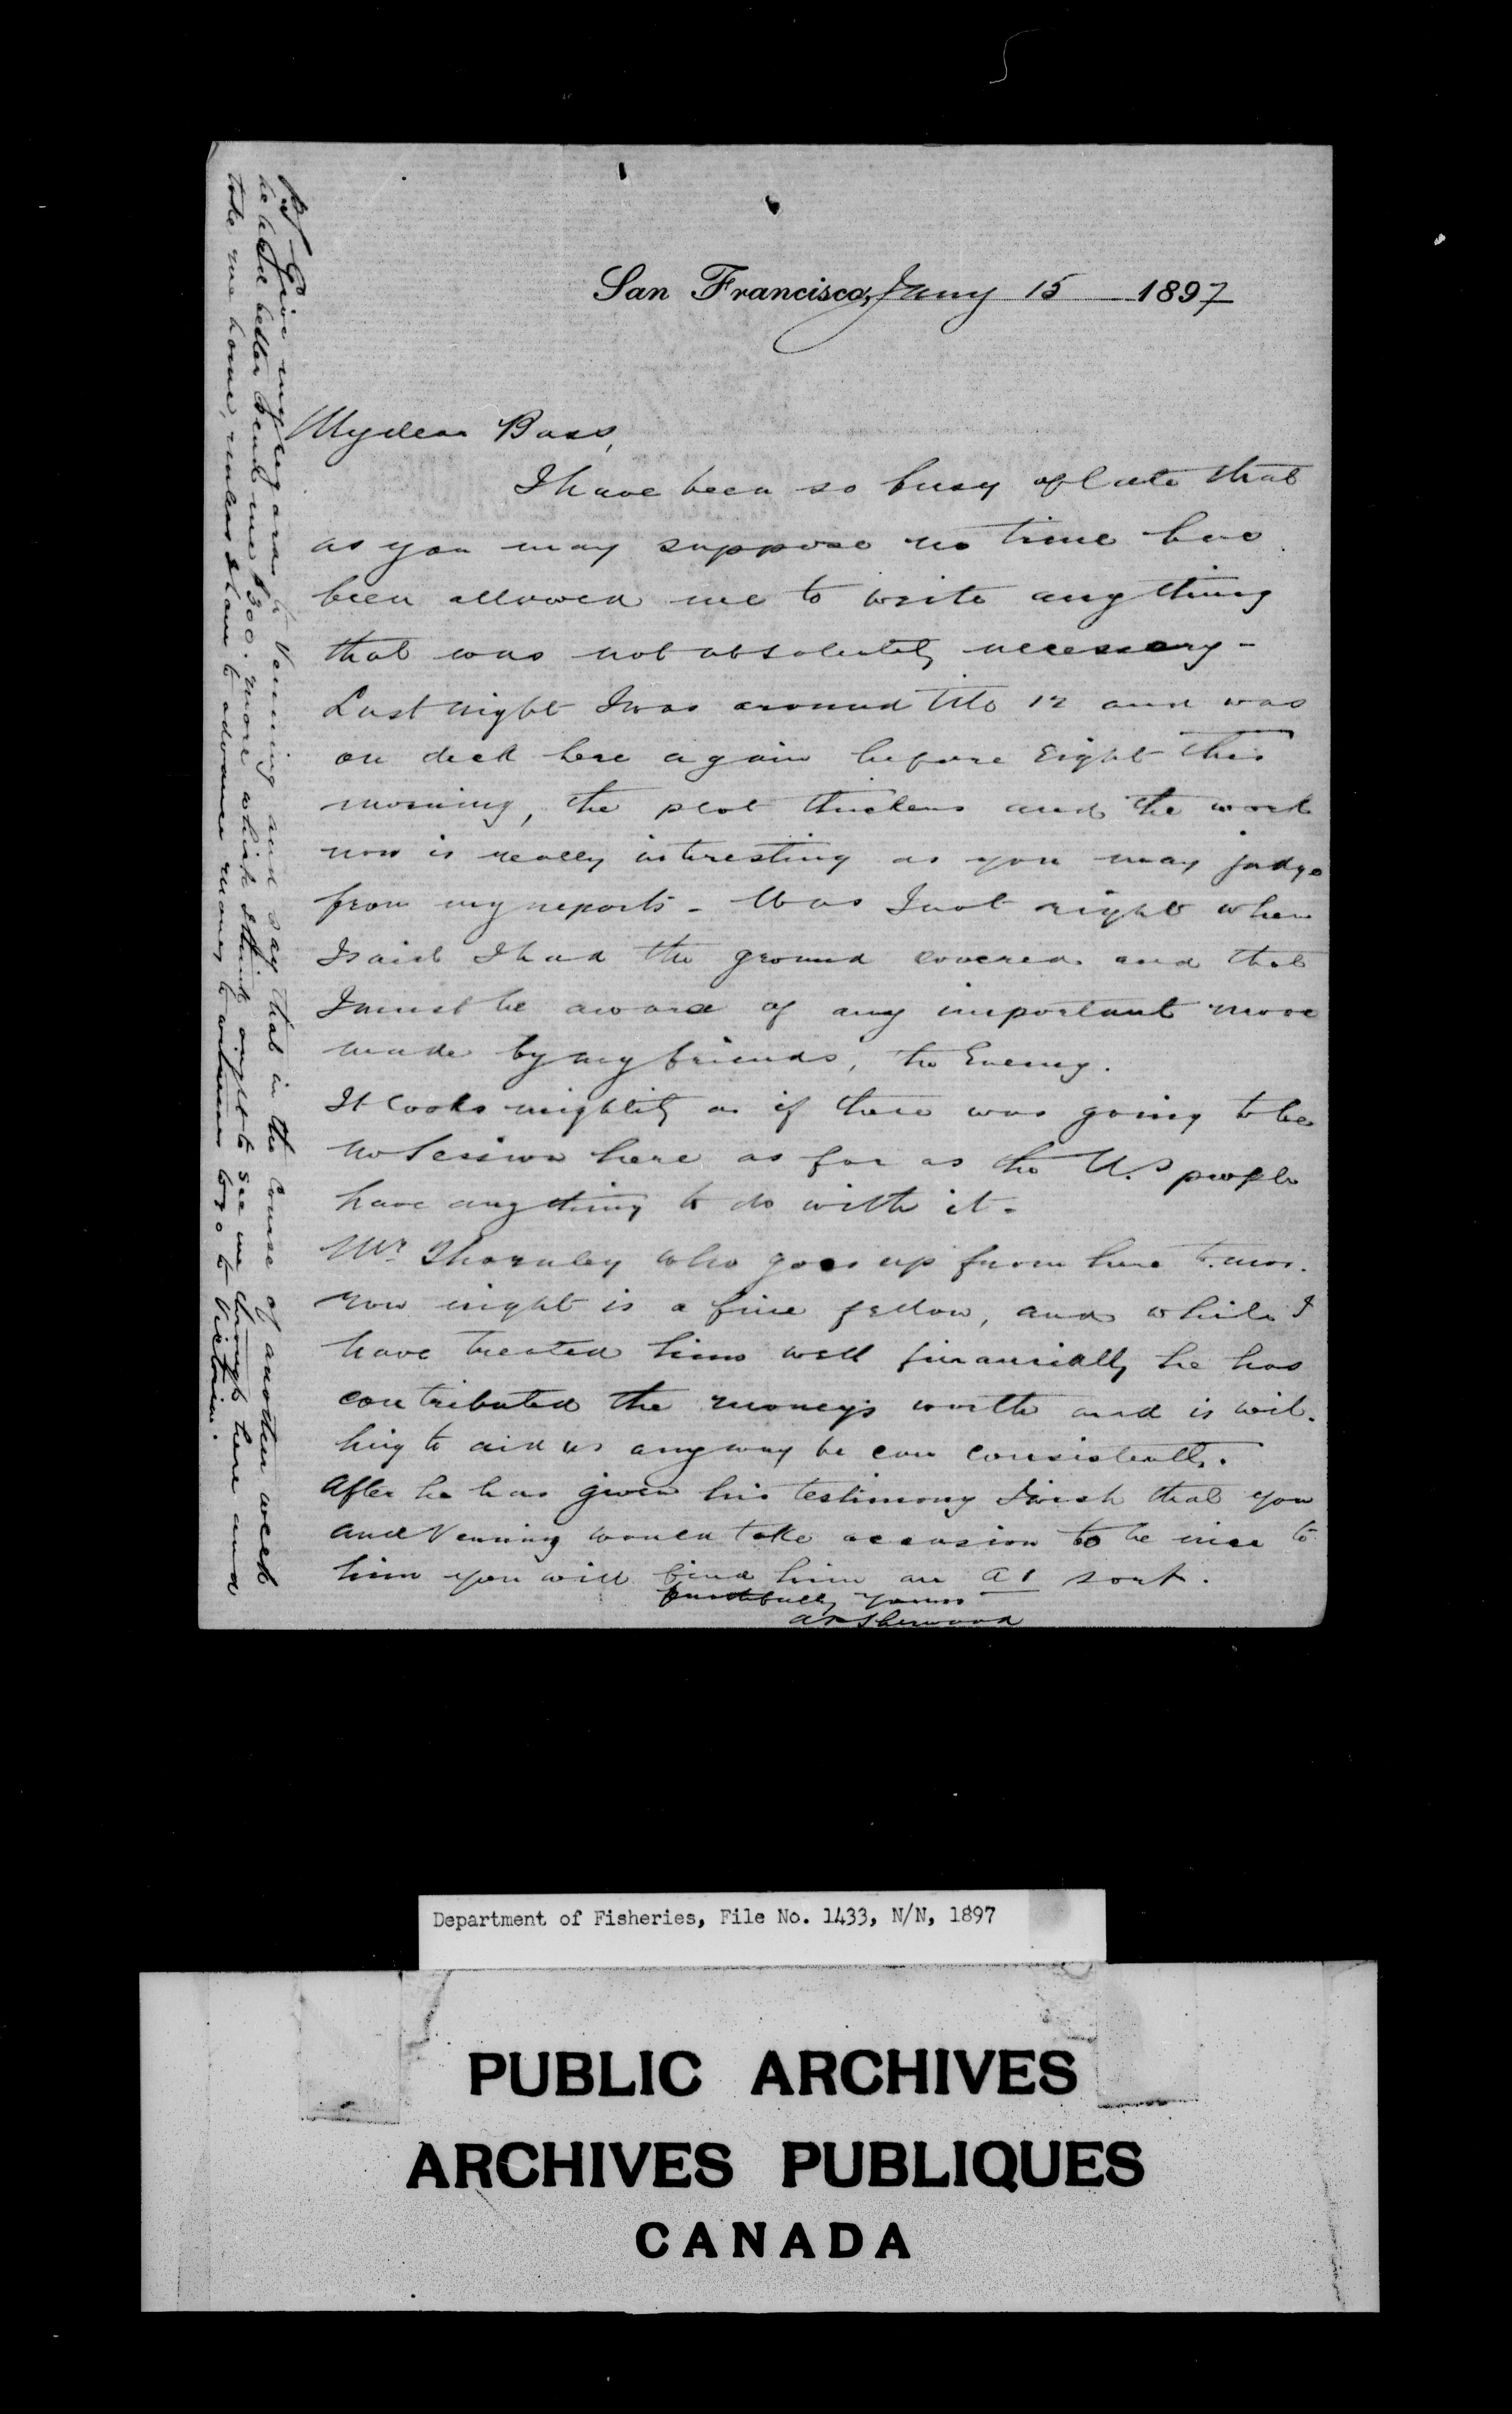 San Francisco, Jany 15 1897
My dear Bass,
I have been so busy of late that
as you may suppose no time has
been allowed me to write anything
that was not absolutely necessary -
Last night I was around till 12 and was
on deck here again before Eight this
morning, the plot thickens and the work
now is really interesting as you may judge
from my reports - Was I not right when
I said I had the ground covered and that
I must be aware of any important move
made by my friends, the Enemy.
It looks mightily as if there was going to be
no Session here as far as the U.S people
have anything to do with it -
Mr. Thornley who goes up from here to.mor.
row night is a fine fellow, and while I
have treated him well financially he has
contributed the money's worth and is wil.
ling to aid us anyway he can consistently.
After he has given his testimony I wish that you
and Venning would take occasion to be nice to
him you will find him an A1 sort.
faithfully yours
A P Sherwood
PS Give my regards to Venning and say that in the course of another week
he had better send me $300. more which I think ought to see me through here and
take me home, unless I have to advance money to witnesses to go to Victoria.
Department of Fisheries, File No. 1433, N/N, 1897
PUBLIC ARCHIVES
ARCHIVES PUBLIQUES
CANADA